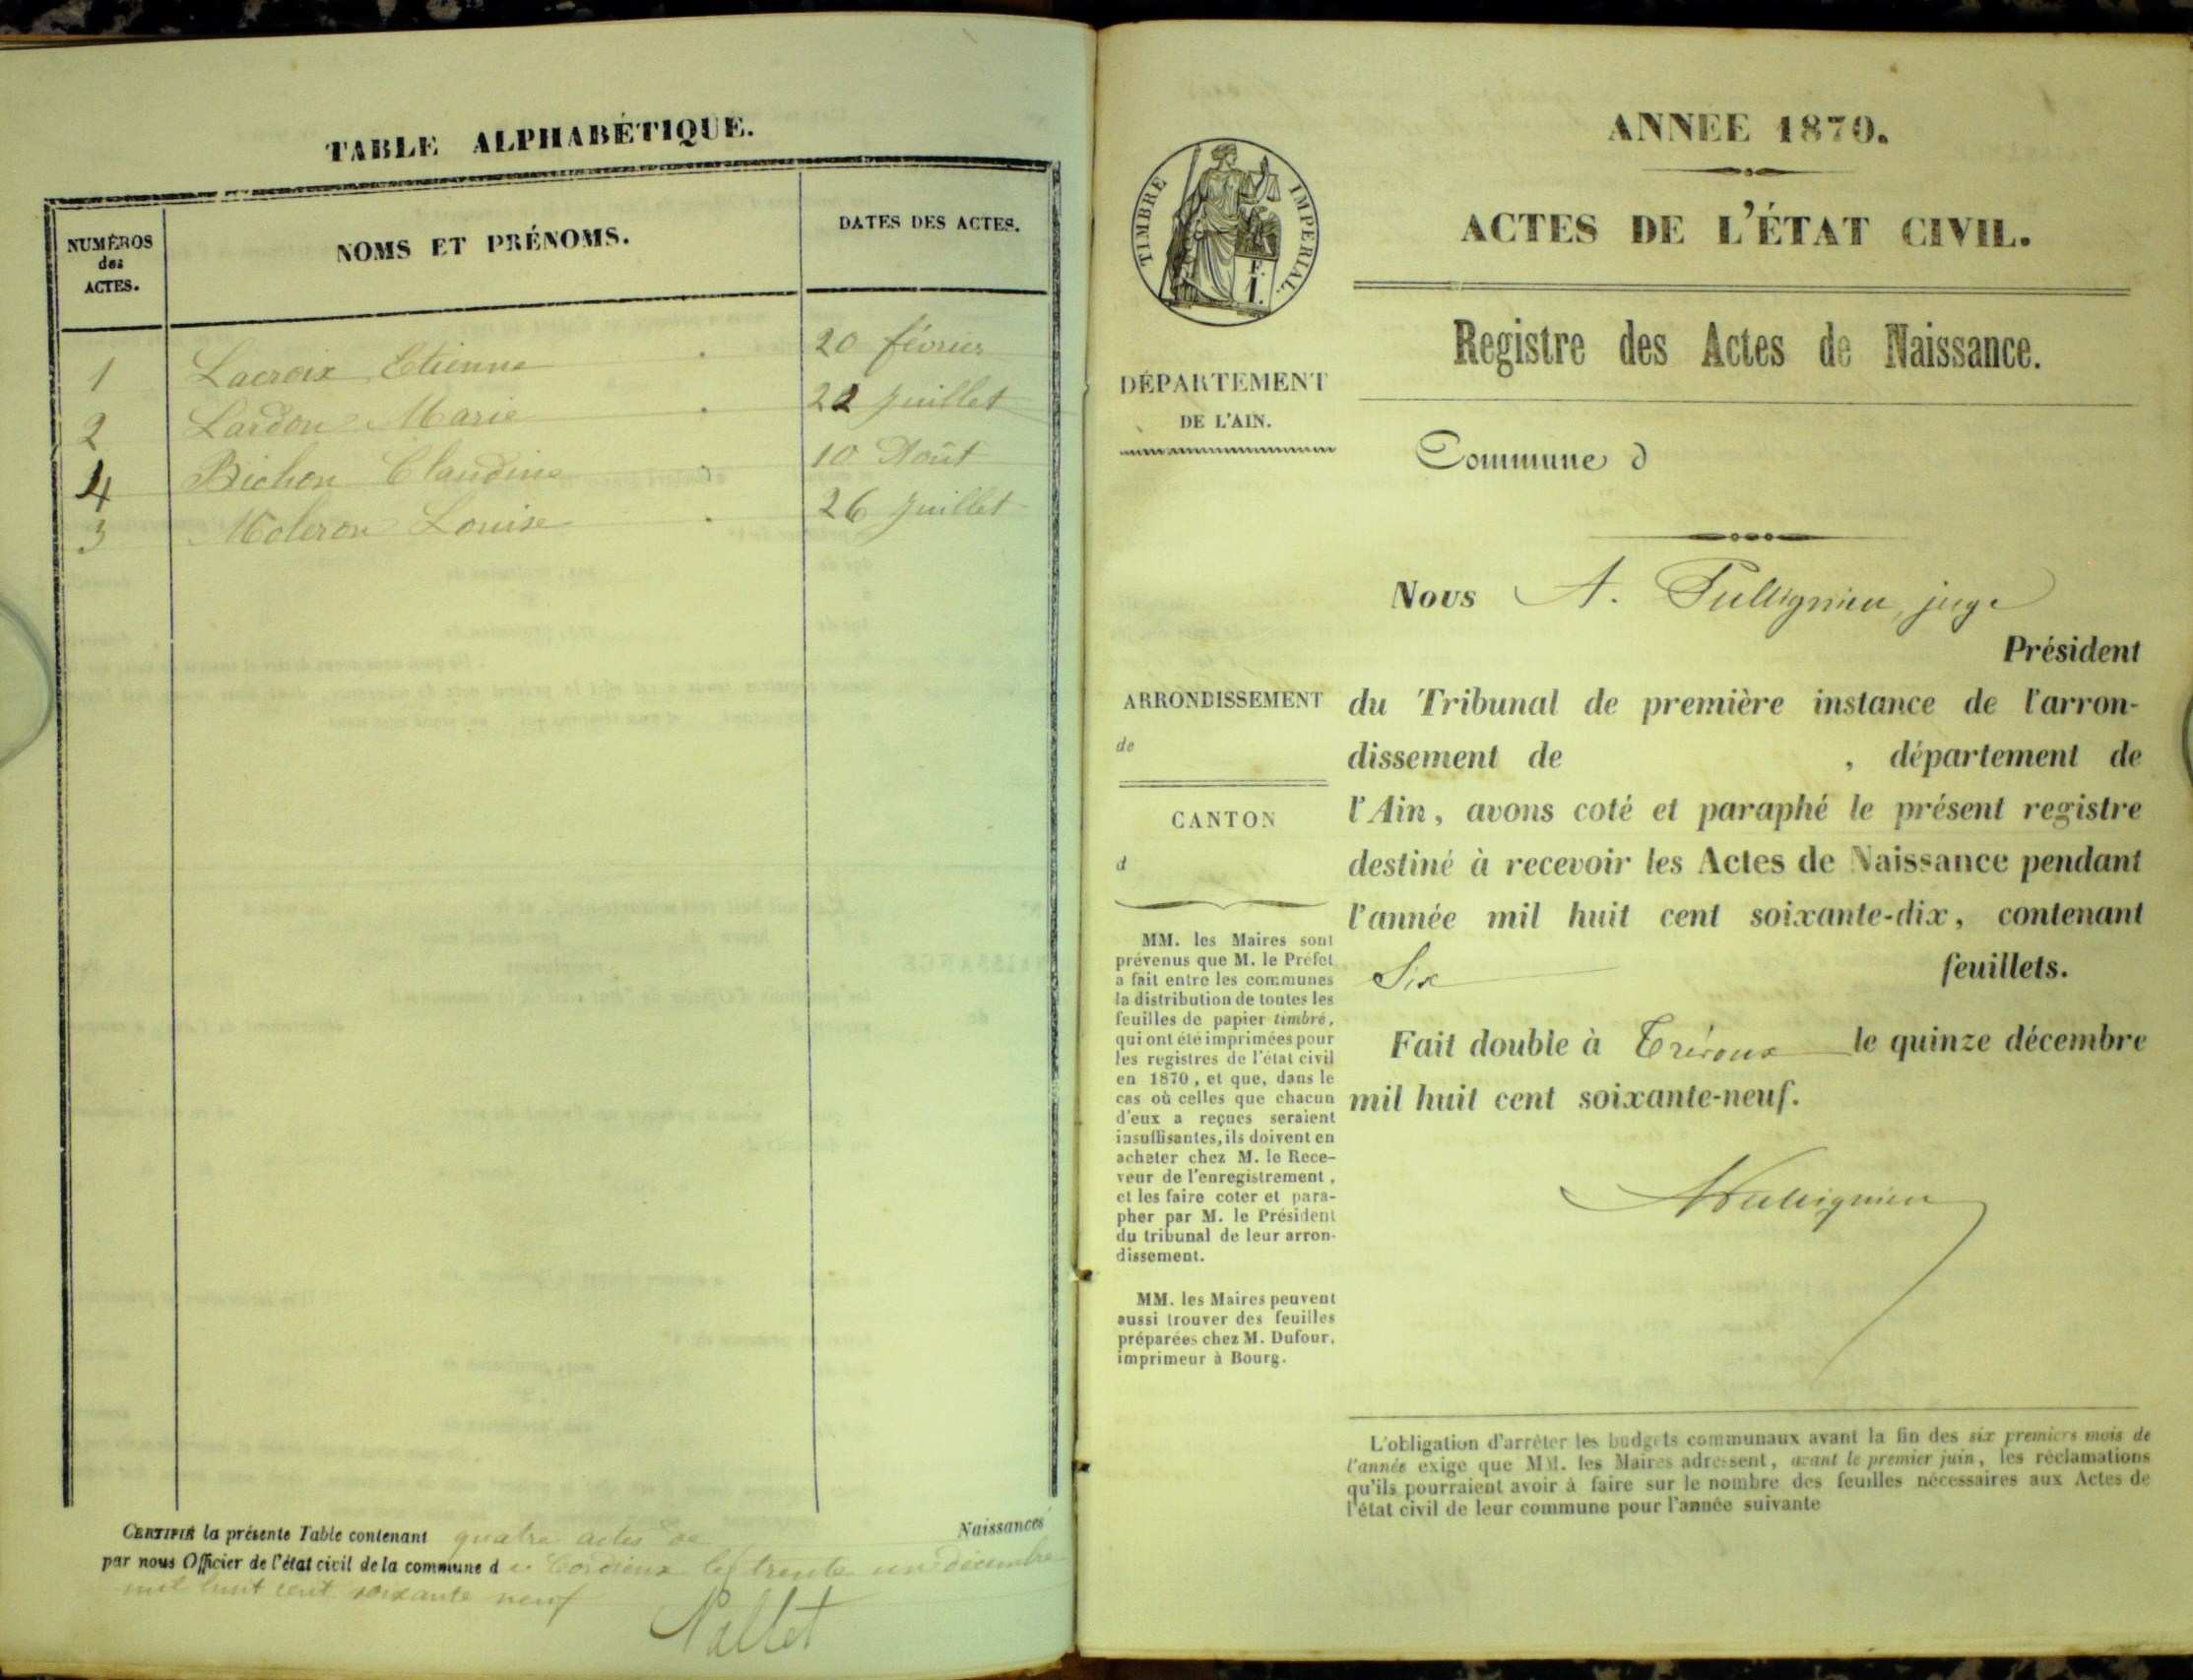 TABLE ALPHABÉTIQUE.
NUMÉROS
des
ACTES.
NOMS ET PRÉNOMS.
DATES DES ACTES.
1 Lacroix Etienne 20 février
2 Lardon Marie 22 Juillet
4 Bichon Claudine 10 Août
3 Moleron Louise 26 Juillet
CERTIFIÉ la présente Table contenant quatre actes de Naissances
par nous Officier de l'état civil de la commune de Cordieux le trente un décembre
mil huit cent soixante neuf
Nallet
TIMBRE IMPERIAL.
F.
1.
DÉPARTEMENT
DE L'AIN.
ARRONDISSEMENT
de
CANTON
d
MM. les Maires sont
prévenus que M. le Préfet
a fait entre les communes
la distribution de toutes les
feuilles de papier timbré,
qui ont été imprimées pour
les registres de l'état civil
en 1870, et que, dans le
cas où celles que chacun
d'eux a reçues seraient
insuffisantes, ils doivent en
acheter chez M. le Rece-
veur de l'enregistrement,
et les faire coter et para-
pher par M. le Président
du tribunal de leur arron-
dissement.
MM. les Maires peuvent
aussi trouver des feuilles
préparées chez M. Dufour,
imprimeur à Bourg.
ANNEE 1870.
ACTES DE L'ÉTAT CIVIL.
Registre des Actes de Naissance.
Commune d
Nous A. juge
Président
du Tribunal de première instance de l'arron-
dissement de , département de
l'Ain, avons coté et paraphé le présent registre
destiné à recevoir les Actes de Naissance pendant
l'année mil huit cent soixante-dix, contenant
Six feuillets.
Fait double à Trévoux le quinze décembre
mil huit cent soixante-neuf.
L'obligation d'arrêter les budgets communaux avant la fin des six premiers mois de
l'année exige que MM. les Maires adressent, avant le premier juin, les réclamations
qu'ils pourraient avoir à faire sur le nombre des feuilles nécessaires aux Actes de
l'état civil de leur commune pour l'année suivante